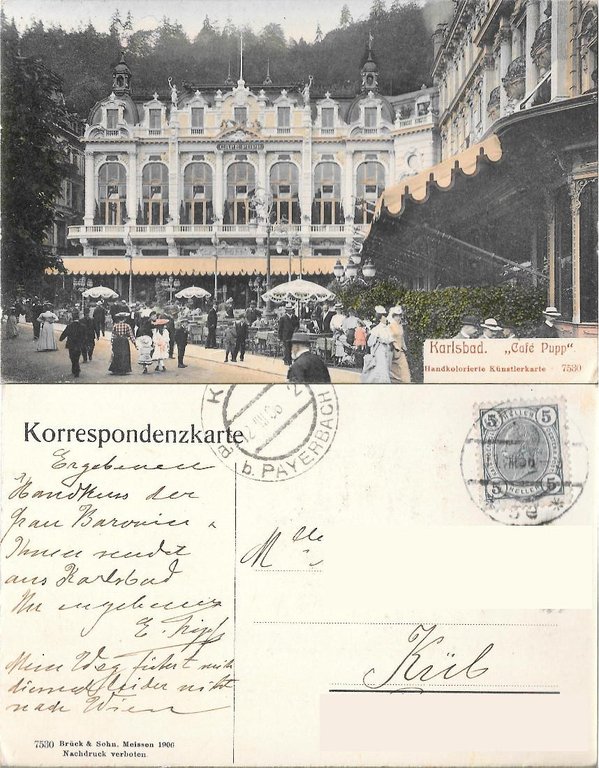 CAFÉ PUPP
Karlsbad. „Café Pupp“
Handkolorierte Künstlerkarte 7530
Korrespondenzkarte
K
2
12 VIII 06
a b. PAYERBACH
5 HELLER 5
5 HELLER 5
Ergebenen
Handkuss der
Frau Baronin u
Ihnen sendet
aus Karlsbad
Ihr ergebener
E.
Mein Weg führt mich
diesmal leider nicht
nach Wien
Mlle
Küb
7530 Brück & Sohn, Meissen 1906
Nachdruck verboten.